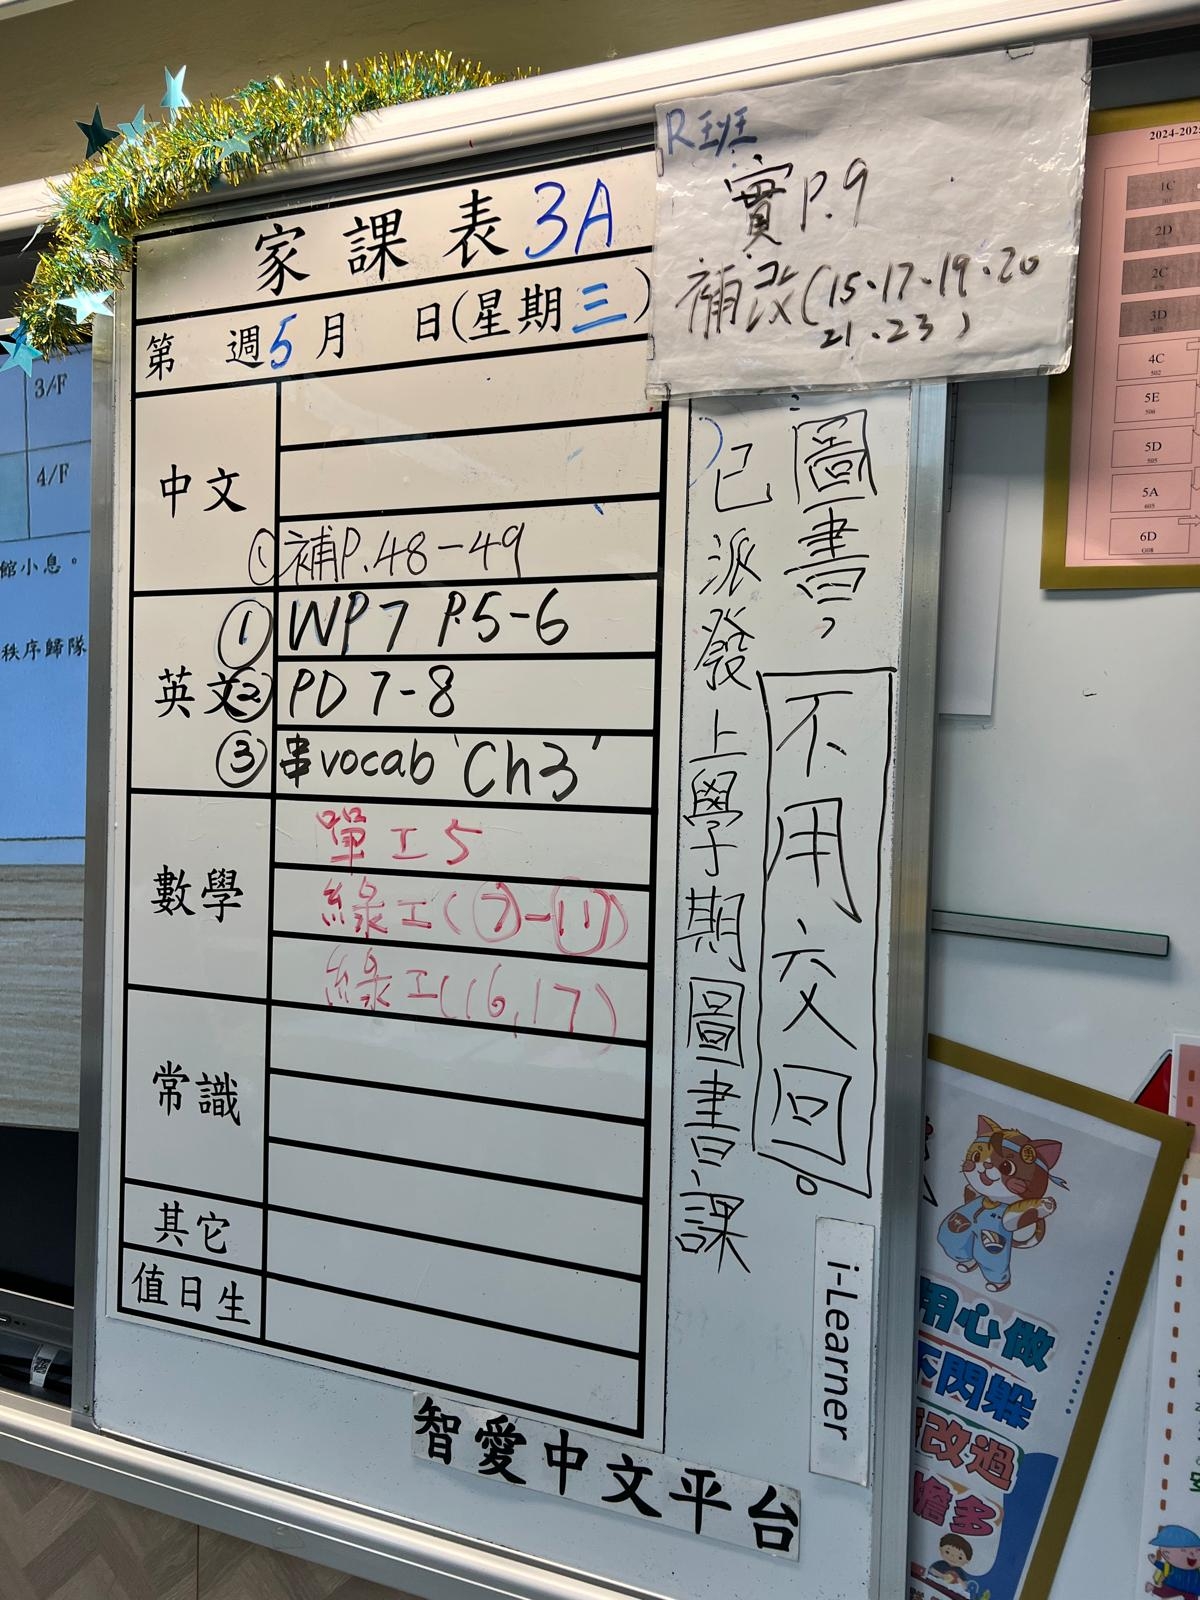 家課表3A
第 週5月 日(星期三)
中文
①補P.48-49
英文
①WP7 P.5-6
②PD 7-8
③串vocab 'Ch3'
數學
單工5
綠工(⑦-⑪)
綠工(16,17)
常識
其它
值日生
R班
實P.9
補改(15、17、19、20
21、23)
已派發上學期圖書課
圖書,不用交回。
i-Learner
智愛中文平台
3/F
4/F
館小息。
秩序歸隊
1C
2D
2C
3D
4C
502
5E
506
5D
505
5A
6D
G08
用心做
不閃躲
改過
膽多